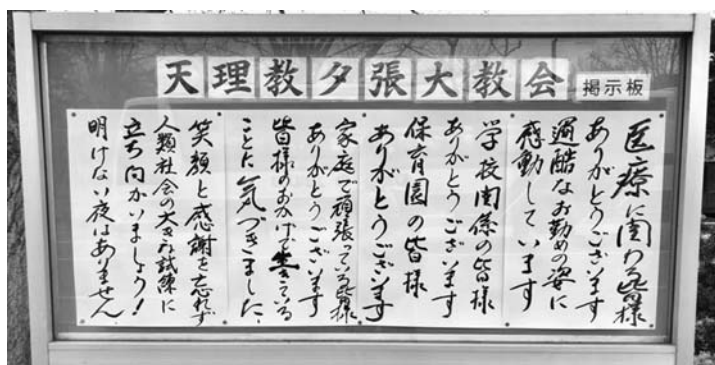 天理教夕張大教会 掲示板
医療に関わる皆様
ありがとうございます
過酷なお勤めの姿に
感動しています
学校関係の皆様
ありがとうございます
保育園の皆様
ありがとうございます
家庭で頑張っている皆様
ありがとうございます
皆様のおかげで生きている
ことに気づきました。
笑顔と感謝を忘れず
人類社会の大きな試練に
立ち向かいましょう!
明けない夜はありません